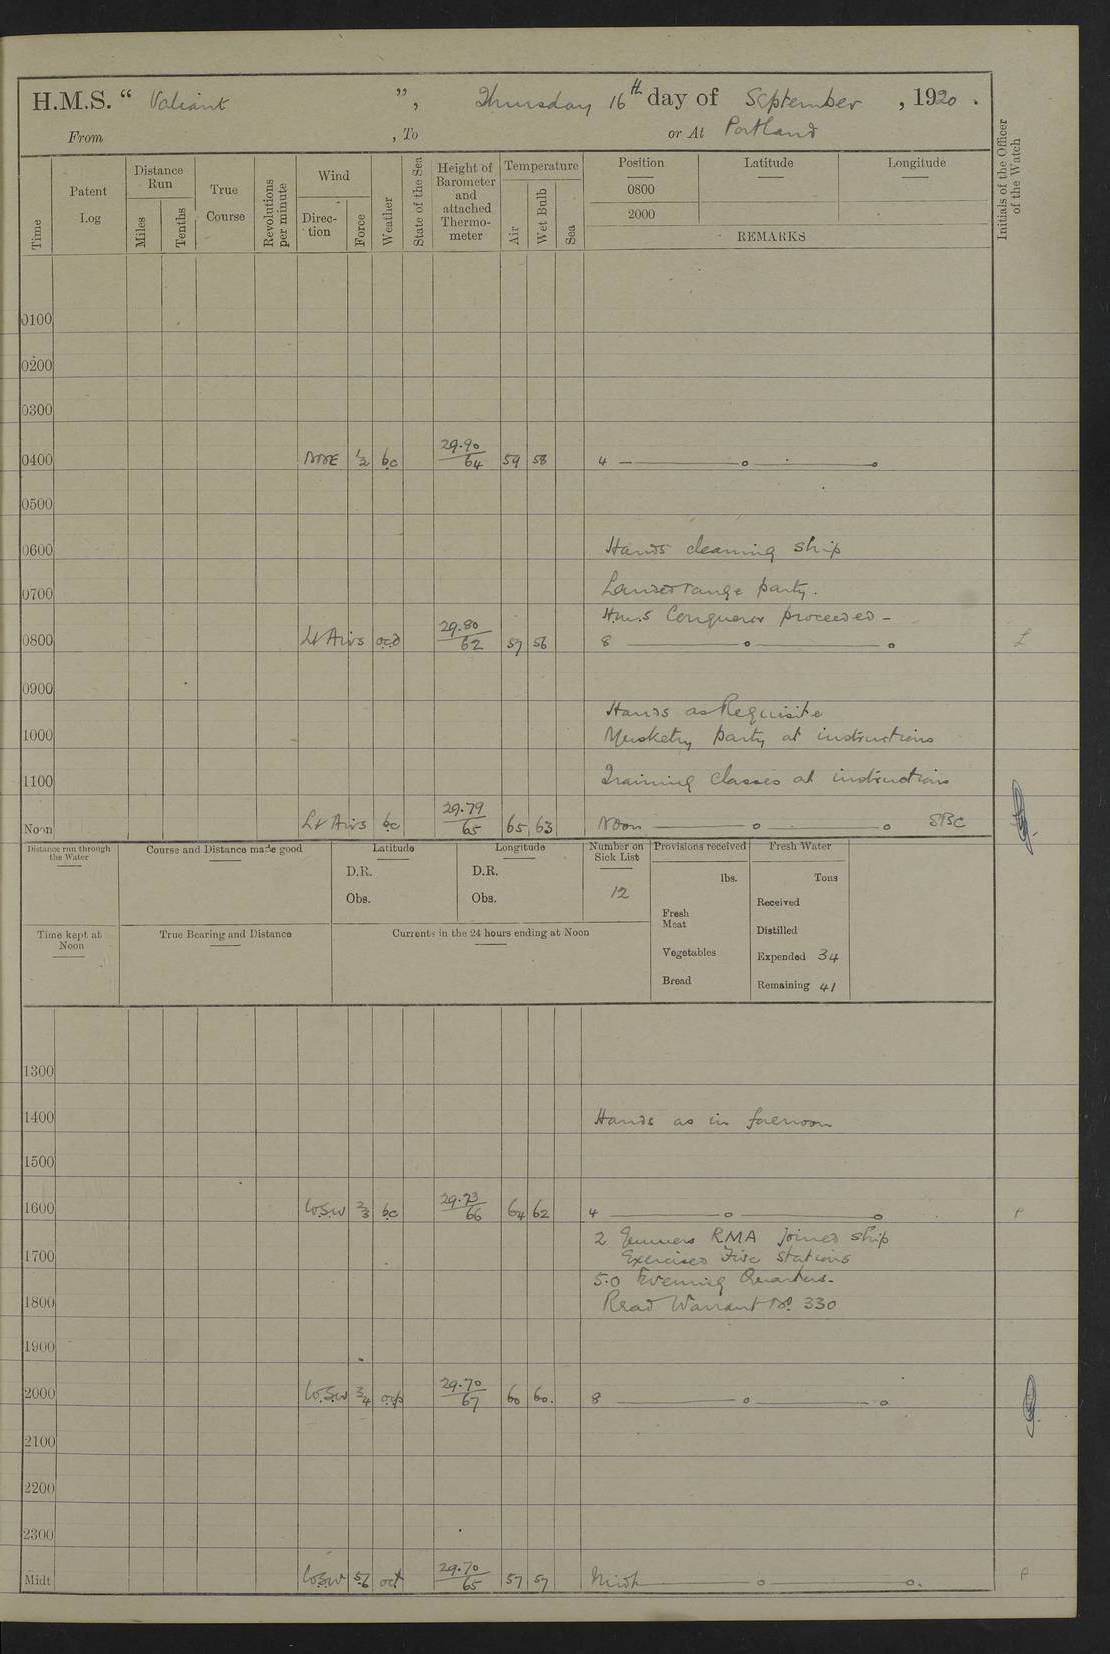 H.M.S. “ Valiant ”, Thursday 16th day of September , 1920.
From , To or At Portland
Time
Patent Log
Distance Run
Miles
Tenths
True Course
Revolutions per minute
Wind
Direc-tion
Force
Weather
State of the Sea
Height of Barometer and attached Thermo-meter
Temperature
Air
Wet Bulb
Sea
Position
0800
2000
Latitude
Longitude
REMARKS
Initials of the Officer of the Watch
0100
0200
0300
0400 NNE 1/2 bc 29.90/64 59 58 4 — o — o
0500
0600 Hands cleaning ship
0700 Landed range party.
H.M.S Conqueror proceeded -
0800 Lt Airs ocd 29.80/62 57 56 8 — o — o
0900
Hands as Requisite
1000 Musketry party at instructions
1100 Training Classes at instruction
Noon Lt Airs bc 29.79/65 65 63 Noon — o — o SBC
Distance run through the Water
Course and Distance made good
Latitude
D.R.
Obs.
Longitude
D.R.
Obs.
Number on Sick List
12
Provisions received
lbs.
Fresh Meat
Vegetables
Bread
Fresh Water
Tons
Received
Distilled
Expended 34
Remaining 41
Time kept at Noon
True Bearing and Distance
Currents in the 24 hours ending at Noon
1300
1400 Hands as in forenoon
1500
1600 WSW 2/3 bc 29.73/66 64 62 4 — o — o P
2 Gunners RMA joined ship
1700 Exercised Fire Stations
5.0 Evening Quarters-
1800 Read Warrant No. 330
1900
2000 WSW 3/4 ocp 29.70/67 60 60. 8 — o — o
2100
2200
2300
Midt WSW 5/6 oc 29.70/65 57 57 Midt — o — o. P